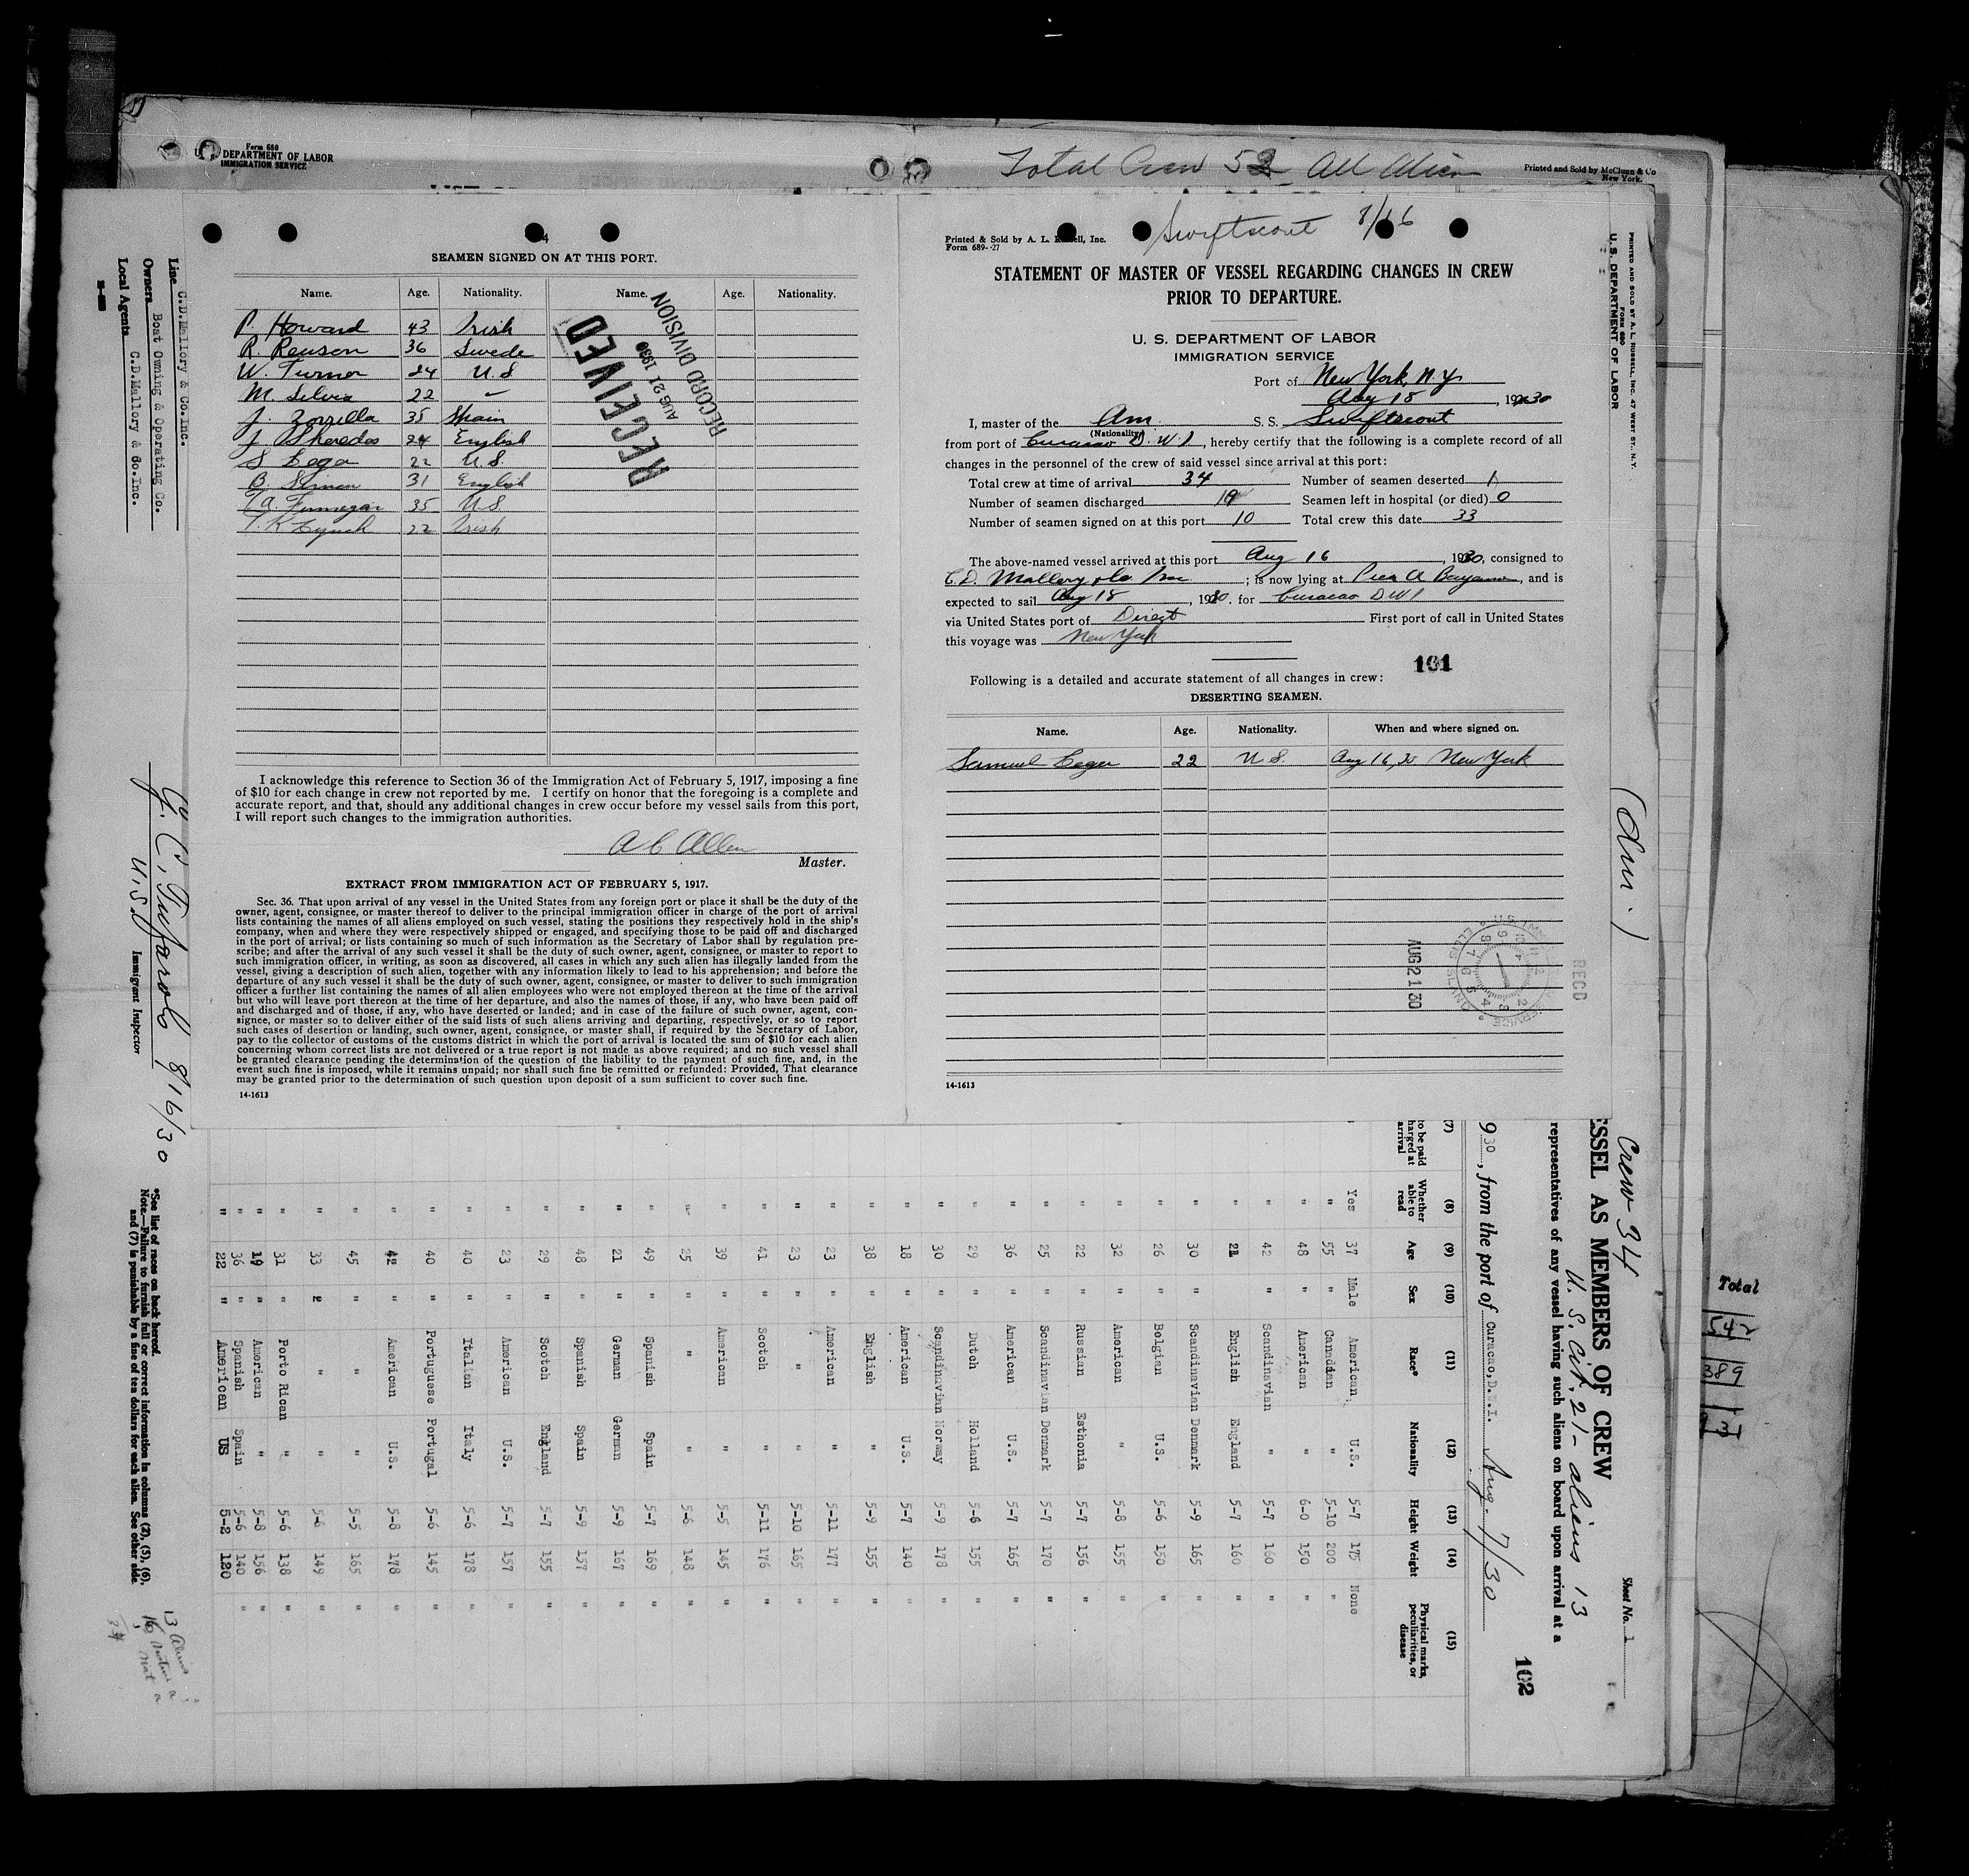 Form 680
U. S. DEPARTMENT OF LABOR
IMMIGRATION SERVICE
Total Crew 52 All Alien
Printed and Sold by McClunn & Co
New York.
4
SEAMEN SIGNED ON AT THIS PORT.
Name. Age. Nationality. Name. Age. Nationality.
P. Howard 43 Irish
R. Renson 36 Swede
W. Turner 24 U.S
M. Silvia 22 "
J. Zorrilla 35 Spain
J. Sheredos 24 English
S Legar 22 U.S.
B. Simon 31 English
T.A. Finnegan 35 U.S.
T. K Lynch 22 Irish
RECEIVED
AUG 21 1930
RECORD DIVISION
I acknowledge this reference to Section 36 of the Immigration Act of February 5, 1917, imposing a fine
of $10 for each change in crew not reported by me. I certify on honor that the foregoing is a complete and
accurate report, and that, should any additional changes in crew occur before my vessel sails from this port,
I will report such changes to the immigration authorities.
A C Allen
Master.
EXTRACT FROM IMMIGRATION ACT OF FEBRUARY 5, 1917.
Sec. 36. That upon arrival of any vessel in the United States from any foreign port or place it shall be the duty of the
owner, agent, consignee, or master thereof to deliver to the principal immigration officer in charge of the port of arrival
lists containing the names of all aliens employed on such vessel, stating the positions they respectively hold in the ship's
company, when and where they were respectively shipped or engaged, and specifying those to be paid off and discharged
in the port of arrival; or lists containing so much of such information as the Secretary of Labor shall by regulation pre-
scribe; and after the arrival of any such vessel it shall be the duty of such owner, agent, consignee, or master to report to
such immigration officer, in writing, as soon as discovered, all cases in which any such alien has illegally landed from the
vessel, giving a description of such alien, together with any information likely to lead to his apprehension; and before the
departure of any such vessel it shall be the duty of such owner, agent, consignee, or master to deliver to such immigration
officer a further list containing the names of all alien employees who were not employed thereon at the time of the arrival
but who will leave port thereon at the time of her departure, and also the names of those, if any, who have been paid off
and discharged and of those, if any, who have deserted or landed; and in case of the failure of such owner, agent, con-
signee, or master so to deliver either of the said lists of such aliens arriving and departing, respectively, or so to report
such cases of desertion or landing, such owner, agent, consignee, or master shall, if required by the Secretary of Labor,
pay to the collector of customs of the customs district in which the port of arrival is located the sum of $10 for each alien
concerning whom correct lists are not delivered or a true report is not made as above required; and no such vessel shall
be granted clearance pending the determination of the question of the liability to the payment of such fine, and, in the
event such fine is imposed, while it remains unpaid; nor shall such fine be remitted or refunded: Provided, That clearance
may be granted prior to the determination of such question upon deposit of a sum sufficient to cover such fine.
14-1613
Swiftscout 8/16
Printed & Sold by A. L. Russell, Inc.
Form 689--27
STATEMENT OF MASTER OF VESSEL REGARDING CHANGES IN CREW
PRIOR TO DEPARTURE.
U. S. DEPARTMENT OF LABOR
IMMIGRATION SERVICE
Port of New York, N.Y.
Aug 18, 1930
I, master of the Am. S. S. Swiftscout
(Nationality)
from port of Curacao D.W.I, hereby certify that the following is a complete record of all
changes in the personnel of the crew of said vessel since arrival at this port:
Total crew at time of arrival 34 Number of seamen deserted 1
Number of seamen discharged 10 Seamen left in hospital (or died) 0
Number of seamen signed on at this port 10 Total crew this date 33
The above-named vessel arrived at this port Aug 16, 1930, consigned to
C.D. Mallory & Co Inc; is now lying at Pier A Bayonne, and is
expected to sail Aug 18, 1930. for Curacao DWI
via United States port of Direct First port of call in United States
this voyage was New York
101
Following is a detailed and accurate statement of all changes in crew:
DESERTING SEAMEN.
Name. Age. Nationality. When and where signed on.
Samuel Legar 22 U.S. Aug 16, 30 New York
AUG 21 30
RECD
14-1613
PRINTED AND SOLD BY A. L. RUSSELL, INC. 47 WEST ST. N.Y.
FORM 680
U. S. DEPARTMENT OF LABOR
(Am.)
Crew 34
U. S. Cit. 21 - aliens 13
Sheet No. 1
ESSEL AS MEMBERS OF CREW
representatives of any vessel having such aliens on board upon arrival at a
930, from the port of Curacao, D.W.I. Aug. 7/30
102
(7) (8) (9) (10) (11) (12) (13) (14) (15)
to be paid harged at arrival Whether able to read Age Sex Race* Nationality Height Weight Physical marks, peculiarities, or disease
Yes 37 Male American U.S. 5-7 175 None
" 55 " Canadian " 5-10 200 "
" 48 " American " 6-0 150 "
" 42 " Scandinavian " 5-7 160 "
" 21 English England 5-7 160 "
" 30 " Scandinavian Denmark 5-9 165 "
" 26 " Belgian U.S. 5-6 150 "
" 32 " American " 5-8 155 "
" 22 " Russian Esthonia 5-7 156 "
" 25 " Scandinavian Denmark 5-7 170 "
" 36 " American U.S. 5-7 165 "
" 29 " Dutch Holland 5-6 155 "
" 30 " Scandinavian Norway 5-9 178 "
" 18 " American U.S. 5-7 140 "
" 38 " English " 5-9 155 "
" 23 " American " 5-11 177 "
" 23 " " " 5-10 165 "
" 41 " Scotch " 5-11 176 "
" 39 " American " 5-5 145 "
" 25 " " " 5-6 148 "
" 49 " Spanish Spain 5-7 169 "
" 21 " German German 5-9 167 "
" 48 " Spanish Spain 5-9 157 "
" 29 " Scotch England 5-7 155 "
" 23 " American U.S. 5-7 157 "
" 40 " Italian Italy 5-6 178 "
" 40 " Portuguese Portugal 5-6 145 "
" 42 " American U.S. 5-8 178 "
" 45 " " " 5-5 165 "
" 33 " " " 5-6 149 "
" 31 " Porto Rican " 5-6 138 "
" 19 " American " 5-8 156 "
" 36 " Spanish Spain 5-6 140 "
" 22 " American US 5-2 120
Line C.D.Mallory & Co.Inc.
Owners Boat Owning & Operating Co.
Local Agents C.D.Mallory & Co.Inc.
8/16/30
U.S. Immigrant Inspector
*See list of races on back hereof.
Note.—Failure to furnish full or correct information in columns (2), (5), (6),
and (7) is punishable by a fine of ten dollars for each alien. See other side.
13 Aliens
34
Total
542
389
931